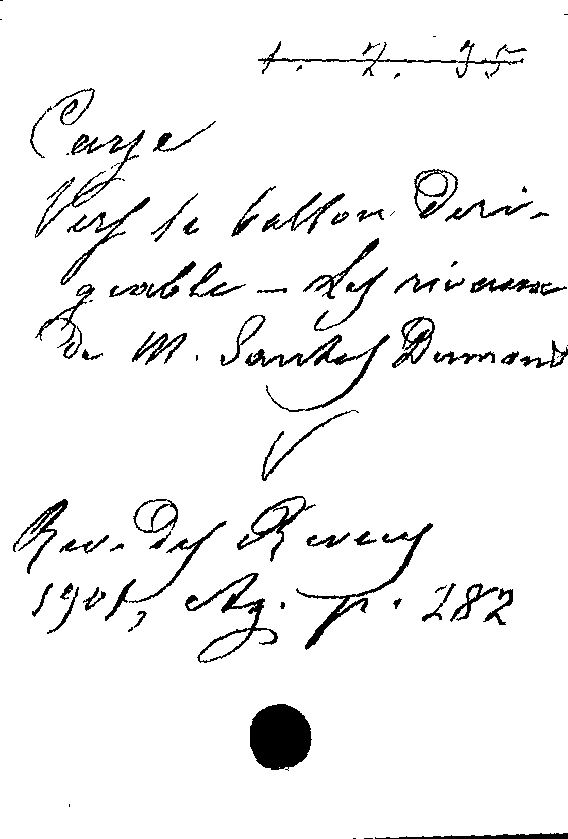 1. 2. 35
Caye
Vers le ballon diri-
geable - Les rivaux
de M. Santos Dumont
Rev. des Revues
1901, Ag. p. 282